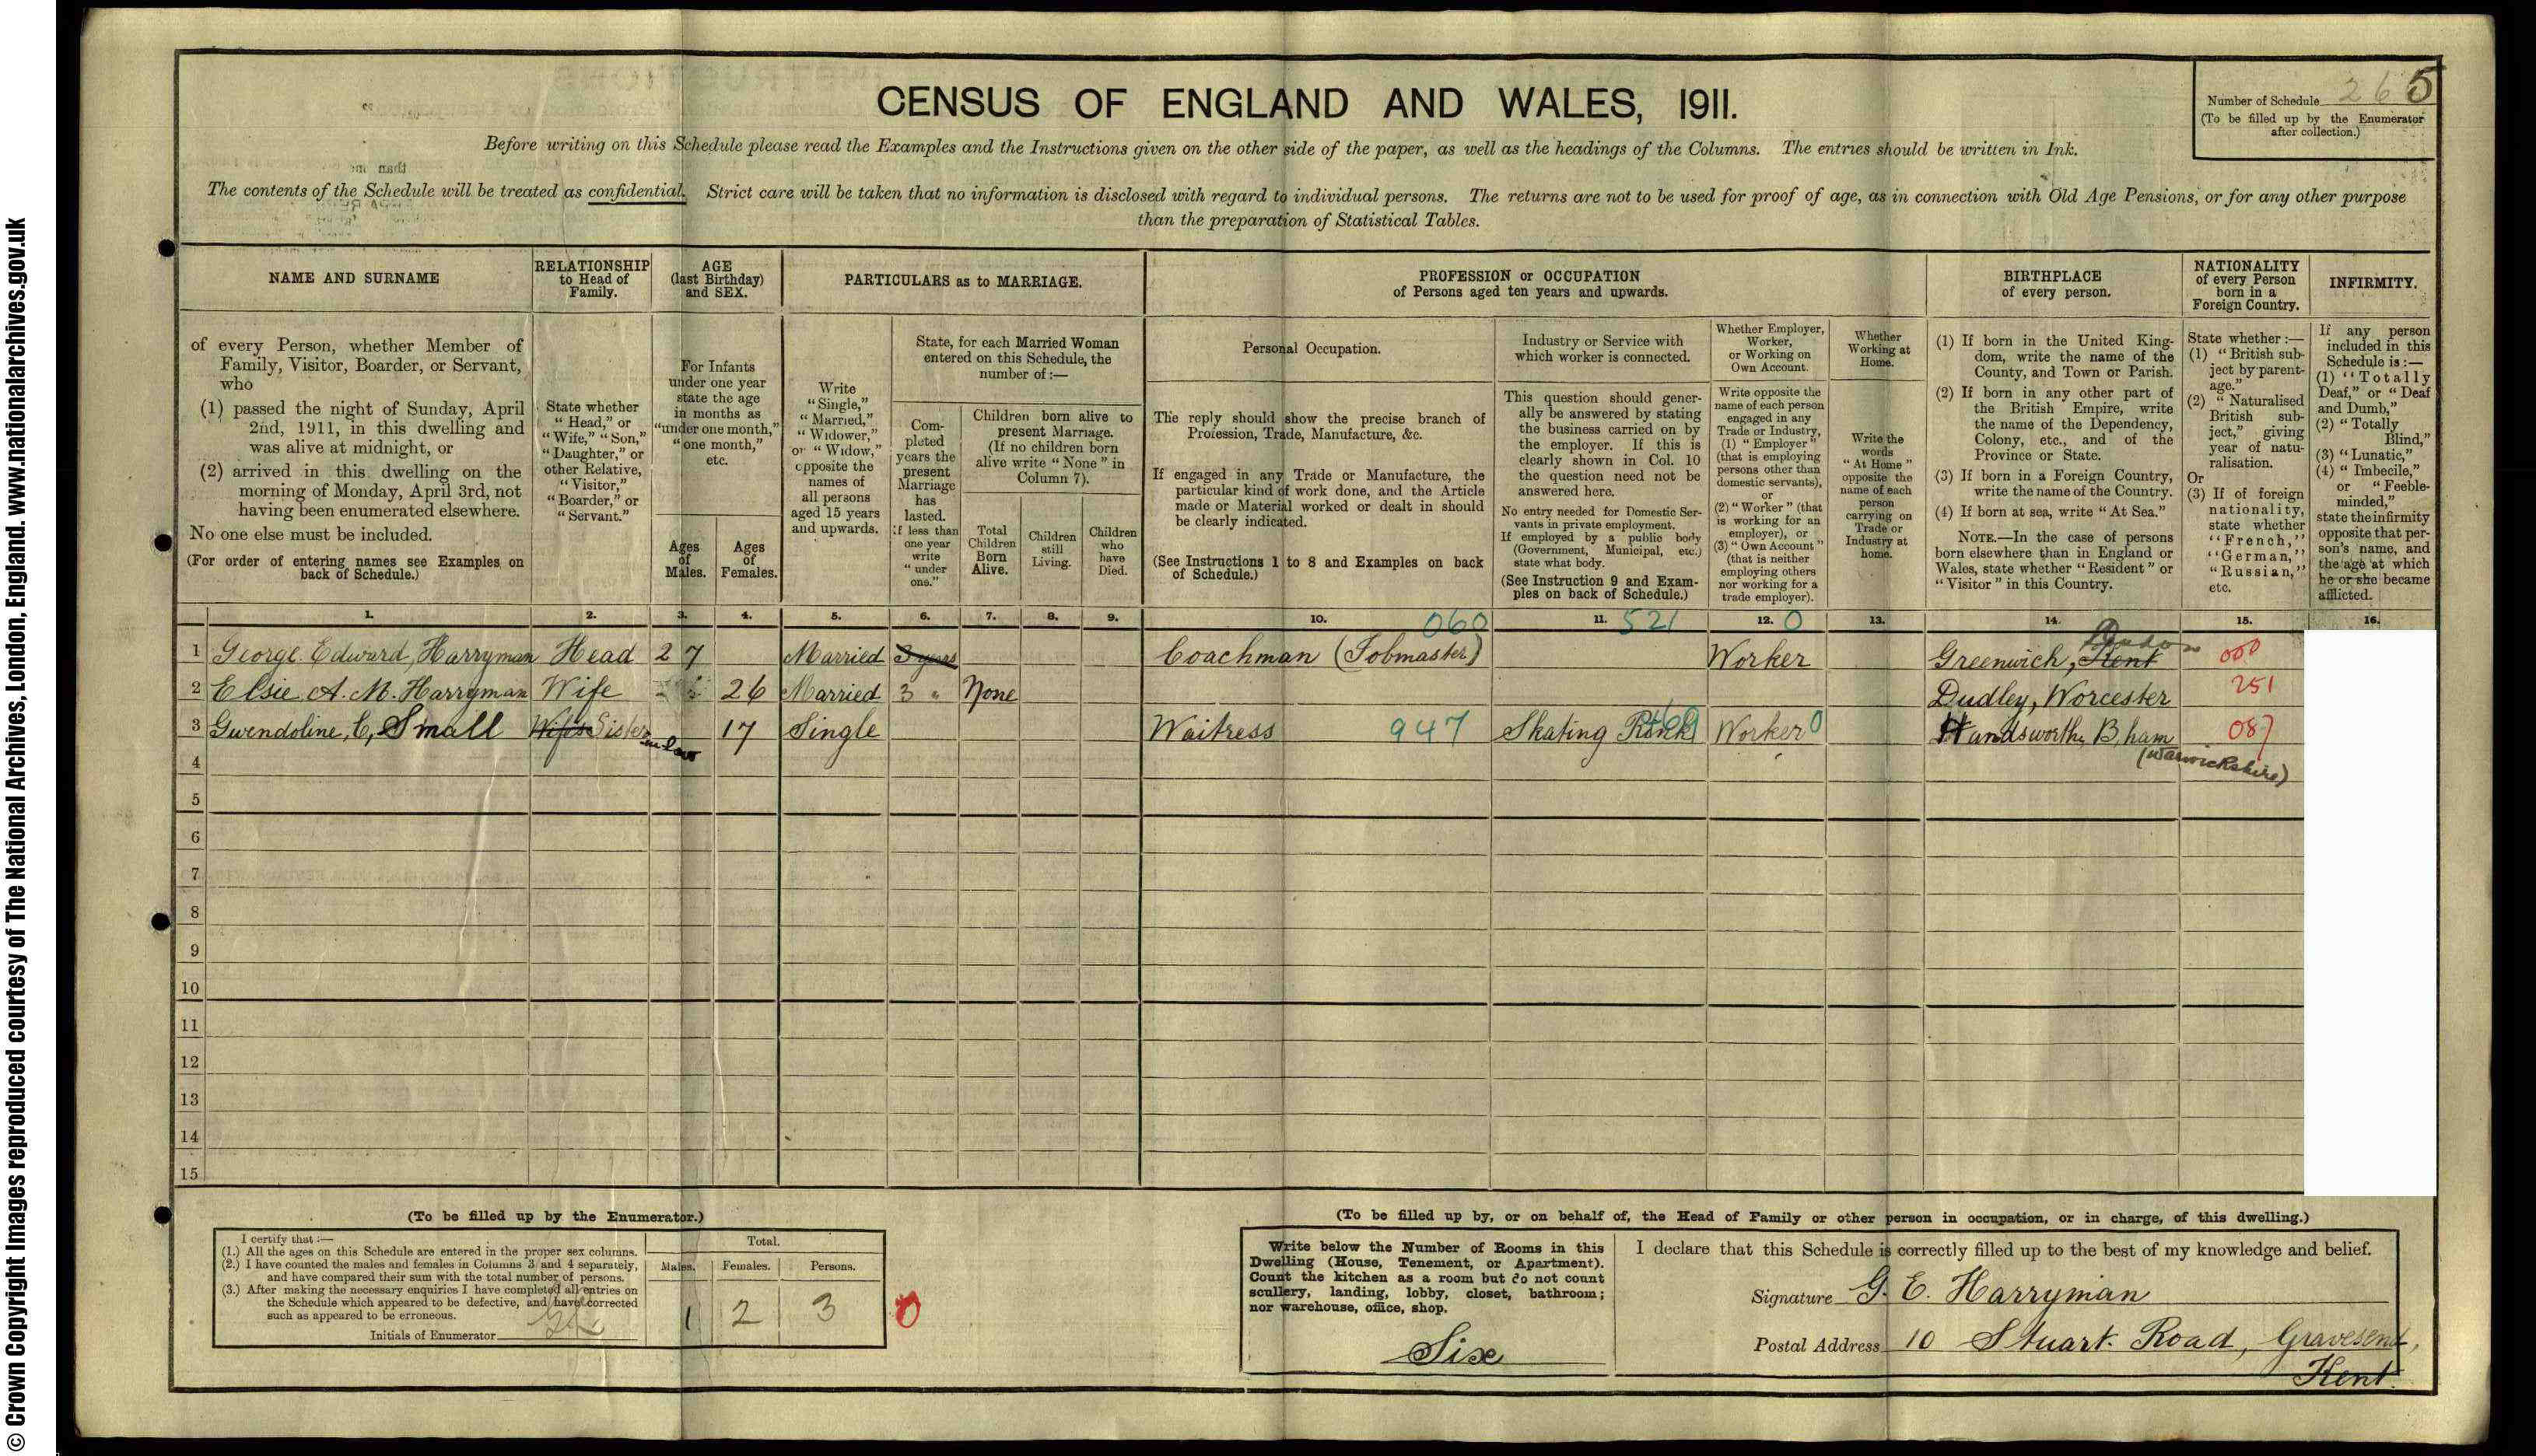 © Crown Copyright Images reproduced courtesy of The National Archives, London, England. www.nationalarchives.gov.uk
CENSUS OF ENGLAND AND WALES, 1911.
Number of Schedule 265
(To be filled up by the Enumerator
after collection.)
Before writing on this Schedule please read the Examples and the Instructions given on the other side of the paper, as well as the headings of the Columns. The entries should be written in Ink.
The contents of the Schedule will be treated as confidential. Strict care will be taken that no information is disclosed with regard to individual persons. The returns are not to be used for proof of age, as in connection with Old Age Pensions, or for any other purpose
than the preparation of Statistical Tables.
NAME AND SURNAME
of every Person, whether Member of
Family, Visitor, Boarder, or Servant,
who
(1) passed the night of Sunday, April
2nd, 1911, in this dwelling and
was alive at midnight, or
(2) arrived in this dwelling on the
morning of Monday, April 3rd, not
having been enumerated elsewhere.
No one else must be included.
(For order of entering names see Examples on
back of Schedule.)
RELATIONSHIP
to Head of
Family.
State whether
"Head," or
"Wife," "Son,"
"Daughter," or
other Relative,
"Visitor,"
"Boarder," or
"Servant."
AGE
(last Birthday)
and SEX.
For Infants
under one year
state the age
in months as
"under one month,"
"one month,"
etc.
Ages
of
Males.
Ages
of
Females.
PARTICULARS as to MARRIAGE.
Write
"Single,"
"Married,"
"Widower,"
or "Widow,"
opposite the
names of
all persons
aged 15 years
and upwards.
State, for each Married Woman
entered on this Schedule, the
number of:—
Com-
pleted
years the
present
Marriage
has
lasted.
If less than
one year
write
"under
one."
Children born alive to
present Marriage.
(If no children born
alive write "None" in
Column 7).
Total
Children
Born
Alive.
Children
still
Living.
Children
who
have
Died.
PROFESSION or OCCUPATION
of Persons aged ten years and upwards.
Personal Occupation.
The reply should show the precise branch of
Profession, Trade, Manufacture, &c.
If engaged in any Trade or Manufacture, the
particular kind of work done, and the Article
made or Material worked or dealt in should
be clearly indicated.
(See Instructions 1 to 8 and Examples on back
of Schedule.)
Industry or Service with
which worker is connected.
This question should gener-
ally be answered by stating
the business carried on by
the employer. If this is
clearly shown in Col. 10
the question need not be
answered here.
No entry needed for Domestic Ser-
vants in private employment.
If employed by a public body
(Government, Municipal, etc.)
state what body.
(See Instruction 9 and Exam-
ples on back of Schedule.)
Whether Employer,
Worker,
or Working on
Own Account.
Write opposite the
name of each person
engaged in any
Trade or Industry,
(1) "Employer"
(that is employing
persons other than
domestic servants),
or
(2) "Worker" (that
is working for an
employer), or
(3) "Own Account"
(that is neither
employing others
nor working for a
trade employer).
Whether
Working at
Home.
Write the
words
"At Home"
opposite the
name of each
person
carrying on
Trade or
Industry at
home.
BIRTHPLACE
of every person.
(1) If born in the United King-
dom, write the name of the
County, and Town or Parish.
(2) If born in any other part of
the British Empire, write
the name of the Dependency,
Colony, etc., and of the
Province or State.
(3) If born in a Foreign Country,
write the name of the Country.
(4) If born at sea, write "At Sea."
NOTE.—In the case of persons
born elsewhere than in England or
Wales, state whether "Resident" or
"Visitor" in this Country.
NATIONALITY
of every Person
born in a
Foreign Country.
State whether:—
(1) "British sub-
ject by parent-
age."
(2) "Naturalised
British sub-
ject," giving
year of natu-
ralisation.
Or
(3) If of foreign
nationality,
state whether
"French,"
"German,"
"Russian,"
etc.
INFIRMITY.
If any person
included in this
Schedule is:—
(1) "Totally
Deaf," or "Deaf
and Dumb,"
(2) "Totally
Blind,"
(3) "Lunatic,"
(4) "Imbecile,"
or "Feeble-
minded,"
state the infirmity
opposite that per-
son's name, and
the age at which
he or she became
afflicted.
1. 2. 3. 4. 5. 6. 7. 8. 9. 10. 060 11. 521 12. 0 13. 14. 15. 16.
1 George Edward Harryman Head 27 Married 3 years Coachman (Jobmaster) Worker Greenwich, Kent London 000
2 Elsie A. M. Harryman Wife 26 Married 3 " None Dudley, Worcester 251
3 Gwendoline, C, Small Wife's Sister in law 17 Single Waitress 947 Skating Rink Worker 0 Handsworth, B,ham 087
(Warwickshire)
4
5
6
7
8
9
10
11
12
13
14
15
(To be filled up by the Enumerator.)
I certify that:—
(1.) All the ages on this Schedule are entered in the proper sex columns.
(2.) I have counted the males and females in Columns 3 and 4 separately,
and have compared their sum with the total number of persons.
(3.) After making the necessary enquiries I have completed all entries on
the Schedule which appeared to be defective, and have corrected
such as appeared to be erroneous.
Initials of Enumerator
Total.
Males. Females. Persons.
1 2 3 0
(To be filled up by, or on behalf of, the Head of Family or other person in occupation, or in charge, of this dwelling.)
Write below the Number of Rooms in this
Dwelling (House, Tenement, or Apartment).
Count the kitchen as a room but do not count
scullery, landing, lobby, closet, bathroom;
nor warehouse, office, shop.
Six
I declare that this Schedule is correctly filled up to the best of my knowledge and belief.
Signature G. E. Harryman
Postal Address 10 Stuart Road, Gravesend,
Kent.